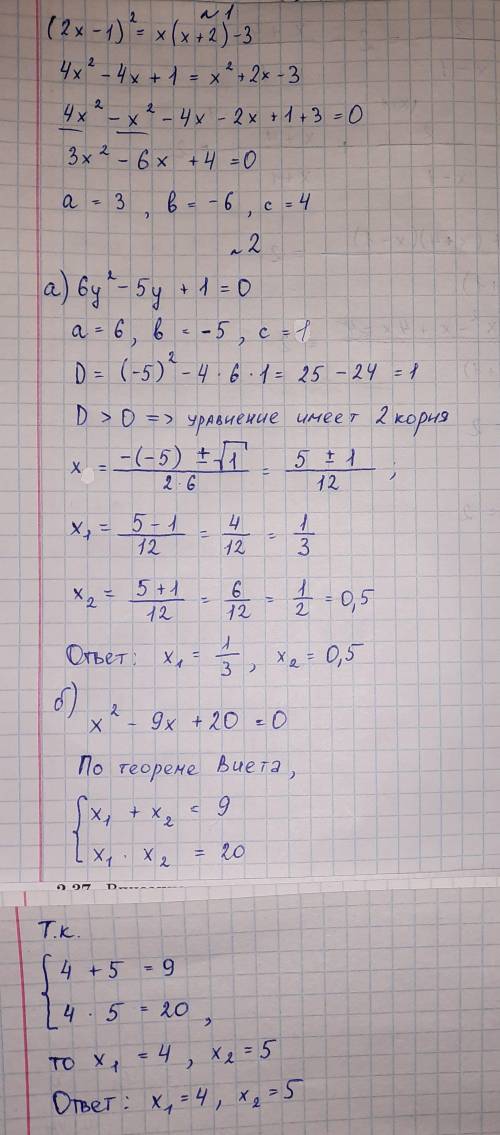 ~1
(2x-1)² = x(x+2)-3
4x² - 4x + 1 = x² + 2x - 3
4x² - x² - 4x - 2x + 1 + 3 = 0
3x² - 6x + 4 = 0
a = 3 , в = -6 , c = 4
~2
а) 6y² - 5y + 1 = 0
a = 6 , в = -5 , c = 1
D = (-5)² - 4 · 6 · 1 = 25 - 24 = 1
D > 0 => уравнение имеет 2 корня
x = (-(-5) ± √1)/(2·6) = (5 ± 1)/12 ;
x₁ = (5-1)/12 = 4/12 = 1/3
x₂ = (5+1)/12 = 6/12 = 1/2 = 0,5
Ответ: x₁ = 1/3 , x₂ = 0,5
б) x² - 9x + 20 = 0
По теореме Виета,
{ x₁ + x₂ = 9
x₁ · x₂ = 20
Т.к.
{ 4 + 5 = 9
4 · 5 = 20 ,
то x₁ = 4 , x₂ = 5
Ответ: x₁ = 4 , x₂ = 5